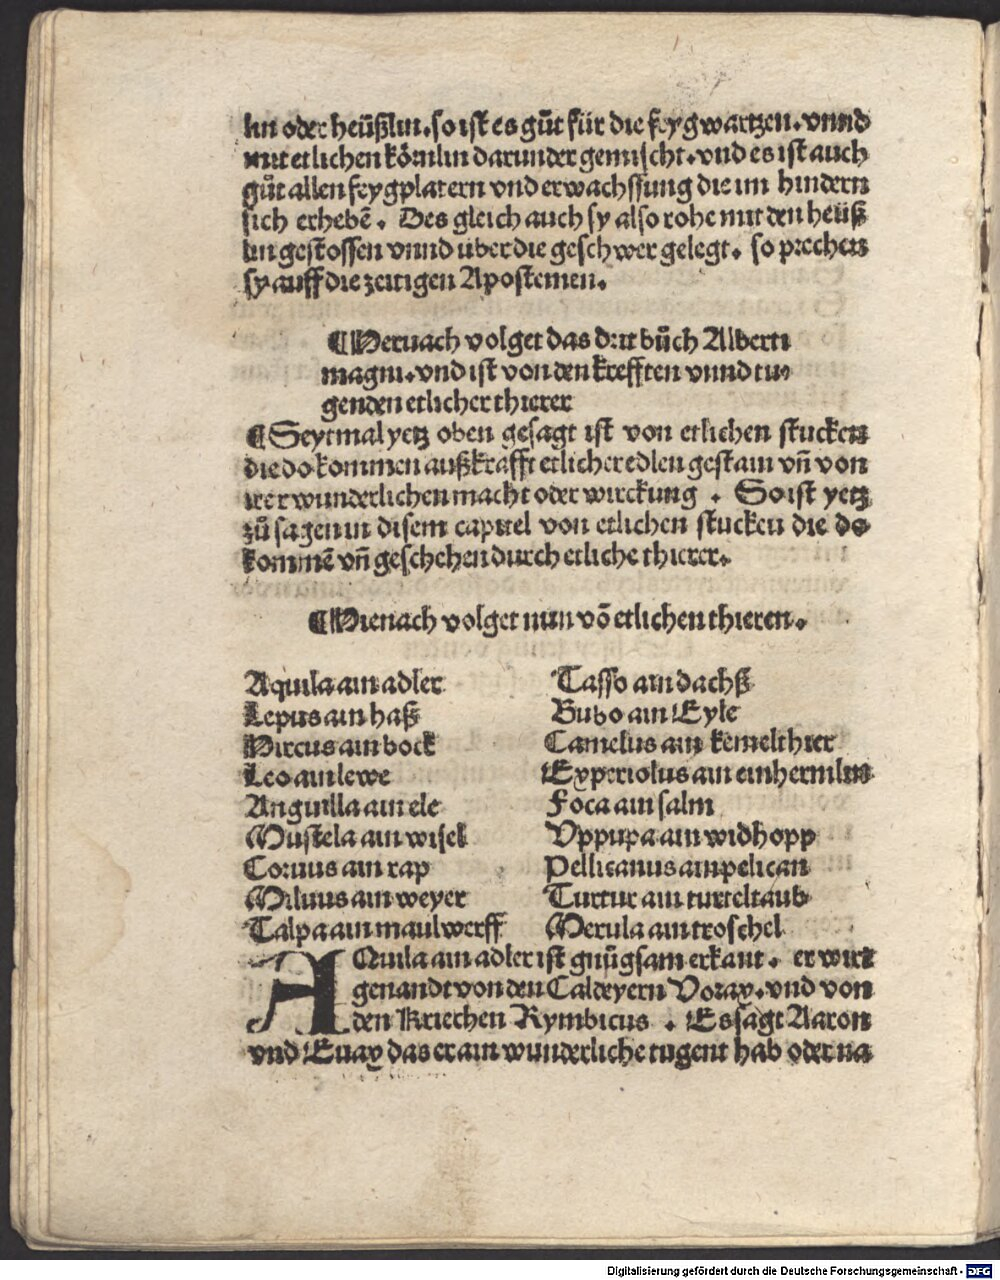 lin oder heüßlin. so ist es gůt für die feygwartzen. vnnd
mit etlichen körnlin darunder gemischt. vnd es ist auch
gůt allen feygplatern vnd erwachssung die im hindern
sich erhebē. Des gleich auch sy also rohe mit den heüß
lin gestossen vnnd über die geschwer gelegt. so prechen
sy auff die zeitigen Apostemen.
¶Hernach volget das drit bůch Alberti
magni. vnd ist von den krefften vnnd tu⸗
genden etlicher thierer
¶Seytmal yetz oben gesagt ist von etlichen stucken
die do kommen auß krafft etlicher edlen gestain vñ von
irer wunderlichen macht oder wirckung . So ist yetz
zů sagen in disem capitel von etlichen stucken die do
kommē vñ geschehen durch etliche thierer.
¶Hienach volget nun vō etlichen thieren.
Aquila ain adler
Lepus ain haß
Hircus ain bock
Leo ain lewe
Anguilla ain ele
Mustela ain wisel
Coruus ain rap
Miluus ain weyer
Talpa ain maulwerff
Tasso ain dachß
Bubo ain Eyle
Camelus ain kemelthier
Experiolus ain einhermlin
Foca ain salm
Vppupa ain widhopp
Pellicanus ain pelican
Turtur ain turteltaub
Merula ain troschel
AQuila ain adler ist gnůgsam erkant . er wirt
genandt von den Caldeyern Voray. vnd von
den Kriechen Rymbicus . Es sagt Aaron
vnd Euay das er ain wunderliche tugent hab oder na
Digitalisierung gefördert durch die Deutsche Forschungsgemeinschaft - DFG